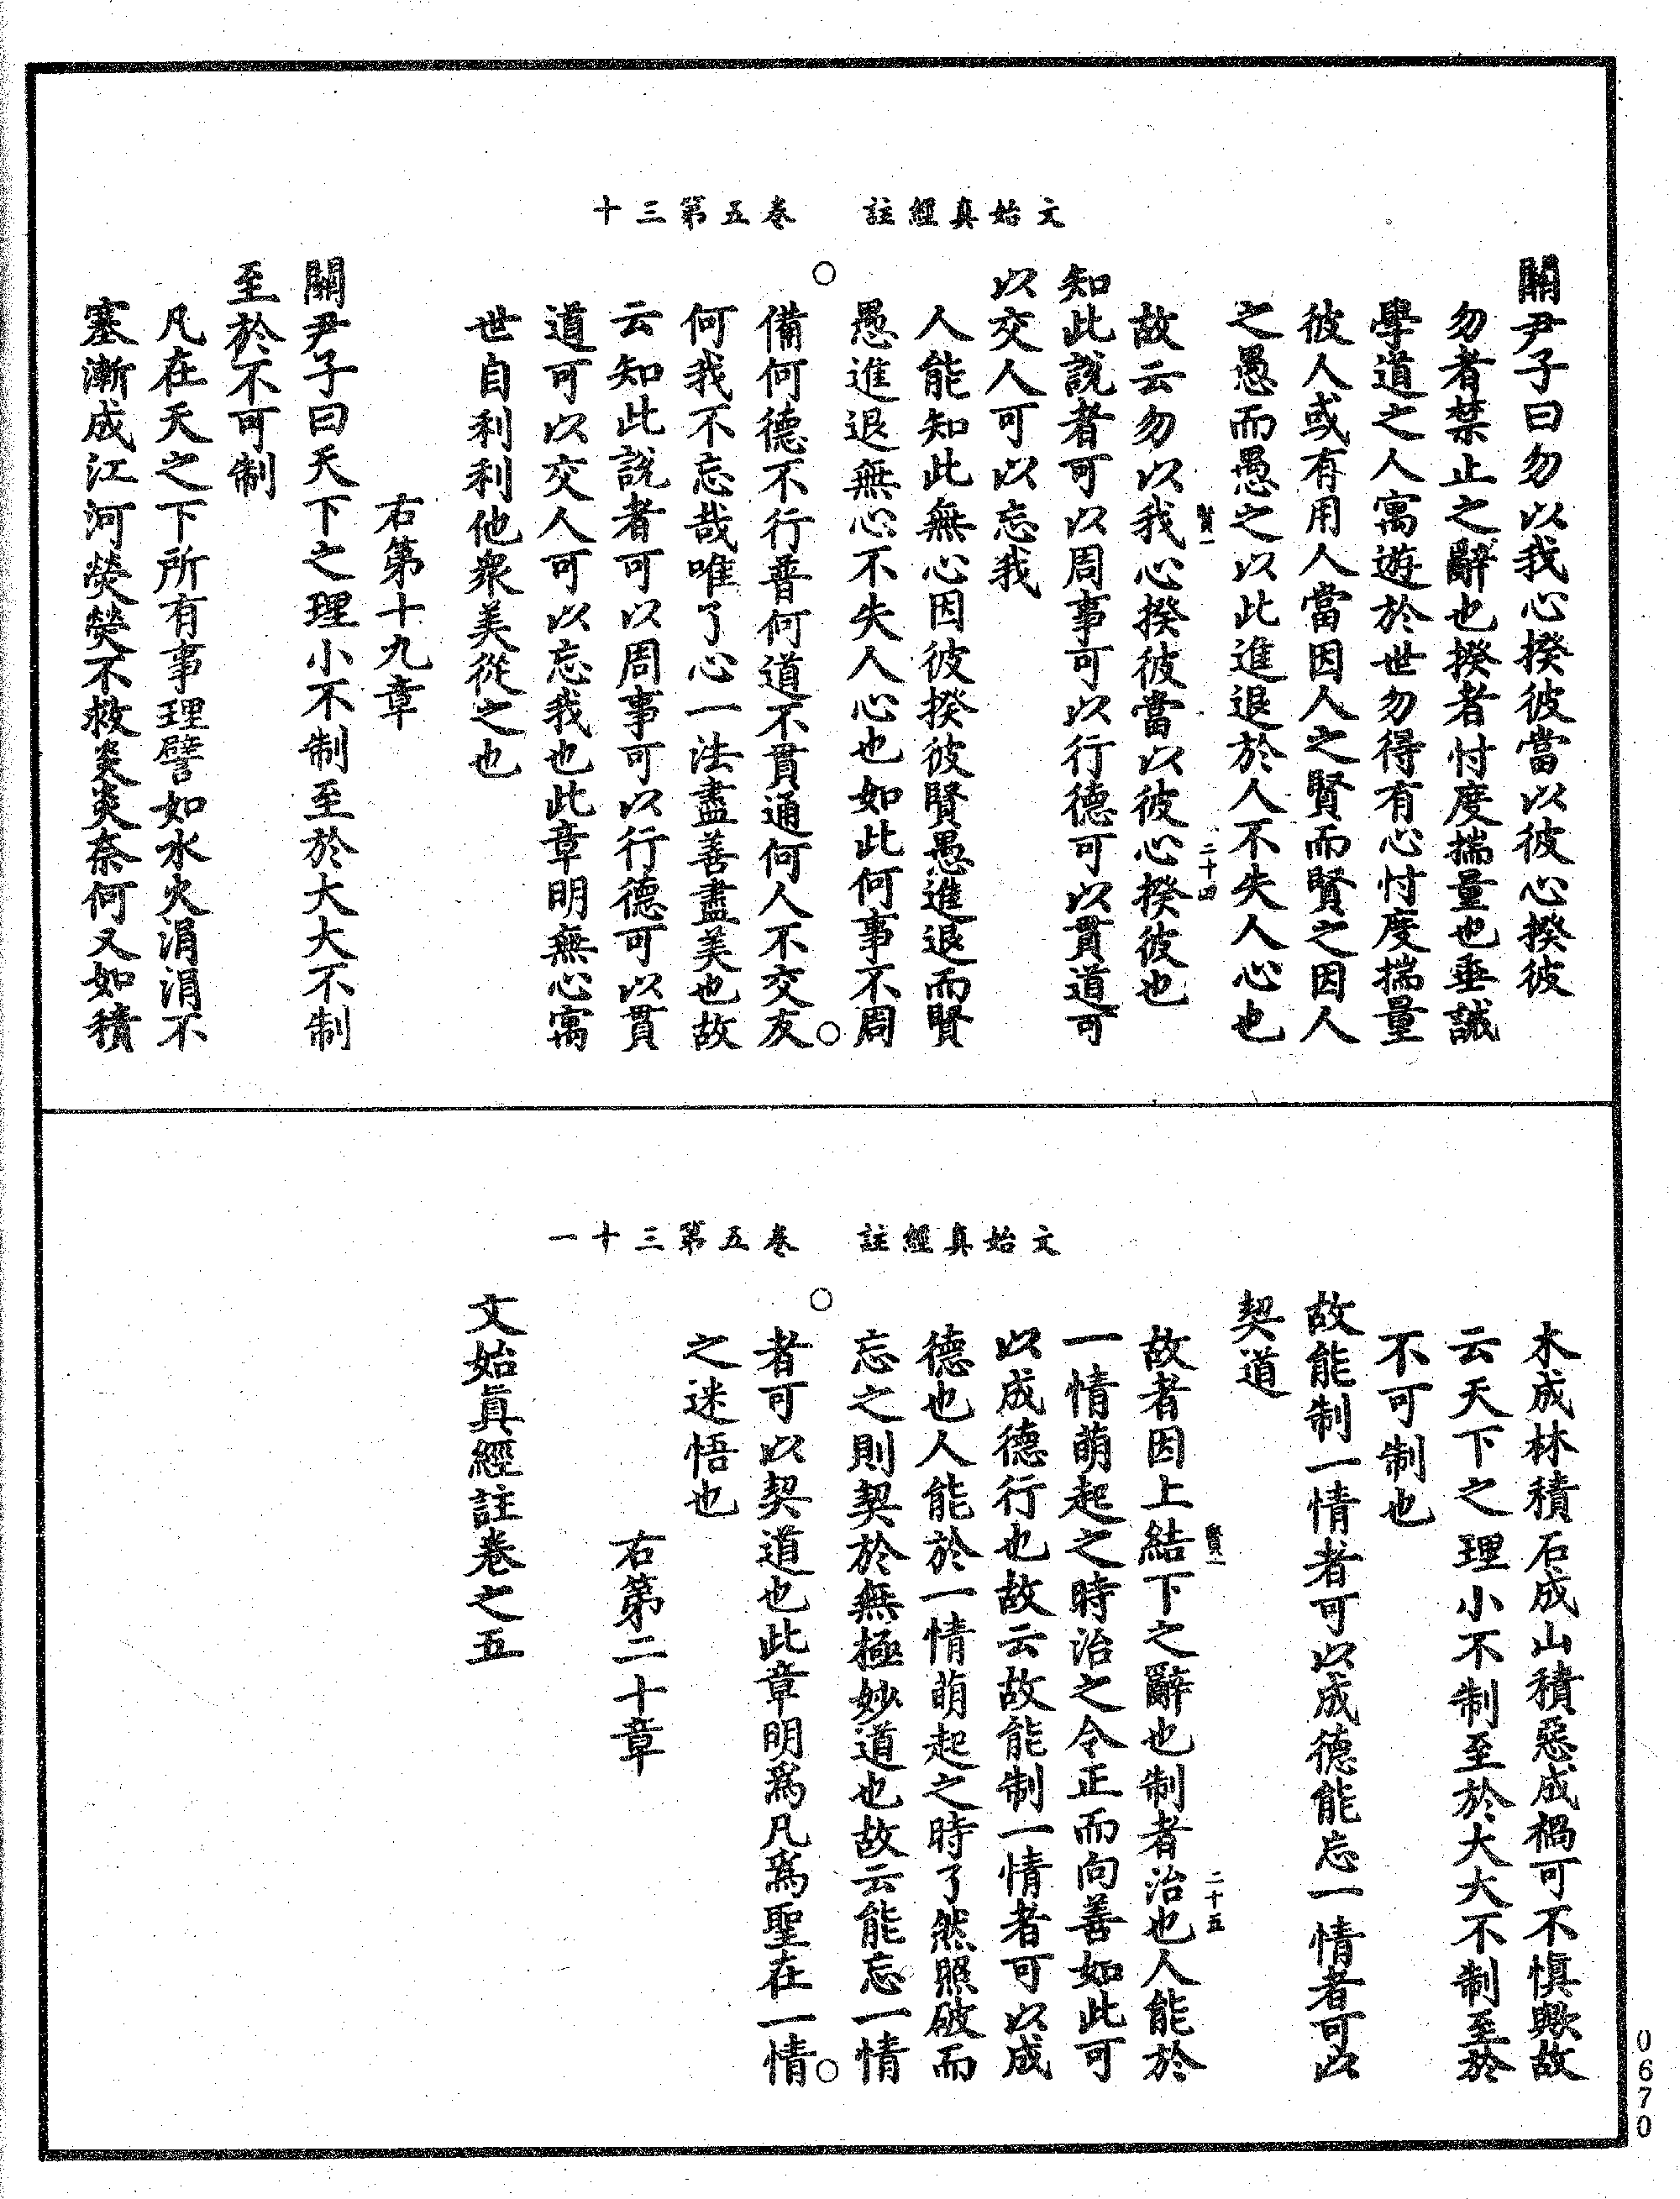 文始真經註　卷五第三十
關尹子曰勿以我心揆彼當以彼心揆彼
勿者禁止之辭也揆者忖度揣量也垂誡
學道之人寓遊於世勿得有心忖度揣量
彼人或有用人當因人之賢而賢之因人
之愚而愚之以此進退於人不失人心也
賢一　二十四
故云勿以我心揆彼當以彼心揆彼也
知此說者可以周事可以行德可以貫道可
以交人可以忘我
人能知此無心因彼揆彼賢愚進退而賢
愚進退無心不失人心也如此何事不周
備何德不行普何道不貫通何人不交友
何我不忘哉唯了心一法盡善盡美也故
云知此說者可以周事可以行德可以貫
道可以交人可以忘我也此章明無心寓
世自利利他衆美從之也
右第十九章
關尹子曰天下之理小不制至於大大不制
至於不可制
凡在天之下所有事理譬如水火涓涓不
塞漸成江河熒熒不救炎炎奈何又如積
文始真經註　卷五第三十一
木成林積石成山積惡成禍可不慎歟故
云天下之理小不制至於大大不制至於
不可制也
故能制一情者可以成德能忘一情者可以
契道
賢一　二十五
故者因上結下之辭也制者治也人能於
一情萌起之時治之令正而向善如此可
以成德行也故云故能制一情者可以成
德也人能於一情萌起之時了然照破而
忘之則契於無極妙道也故云能忘一情
者可以契道也此章明爲凡爲聖在一情
之迷悟也
右第二十章
文始真經註卷之五
0670